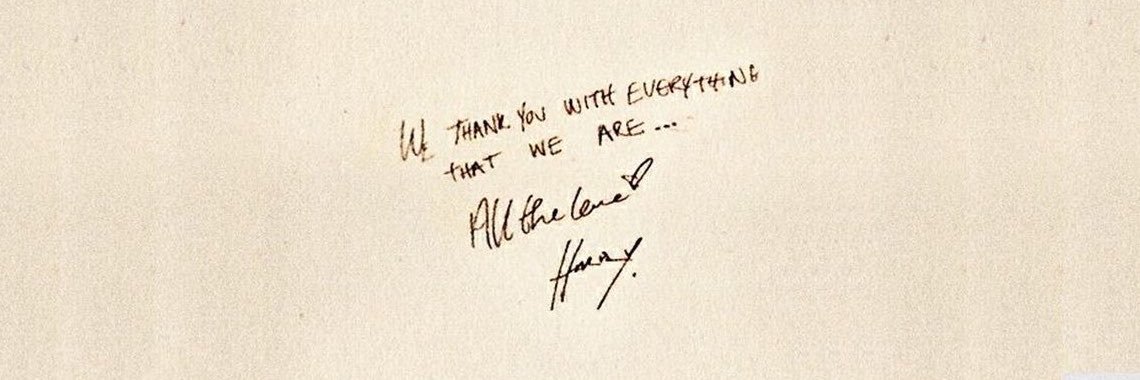 We THANK YOU WITH EVERYTHING
THAT WE ARE...
All the love
Harry.